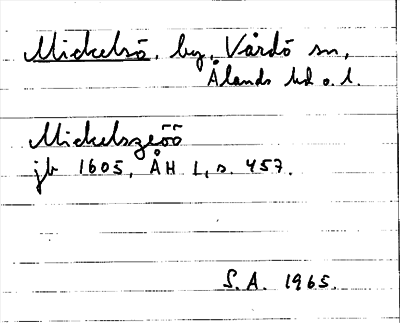 Mickelsö, by, Vårdö sn,
Ålands hd o. l.
Mickelszöö
jb 1605, ÅH I, s. 457.
S.A. 1965.